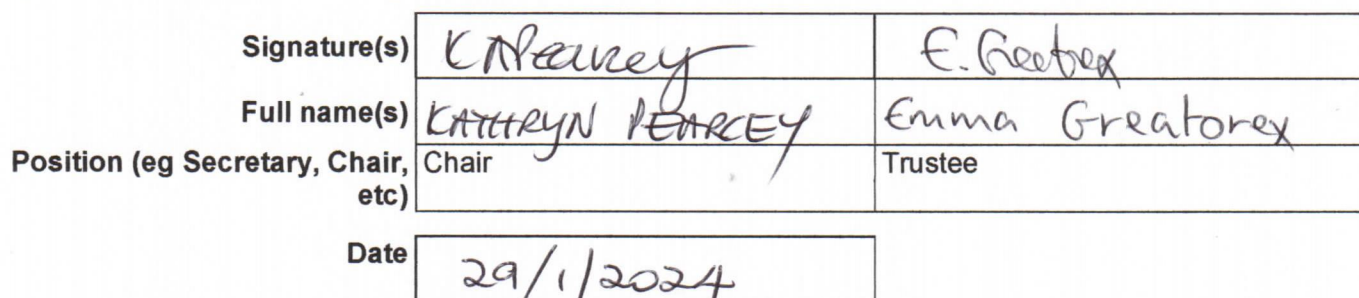 Signature(s) KAPearcey E. Greatorex
Full name(s) KATHRYN PEARCEY Emma Greatorex
Position (eg Secretary, Chair, etc) Chair Trustee
Date 29/1/2024